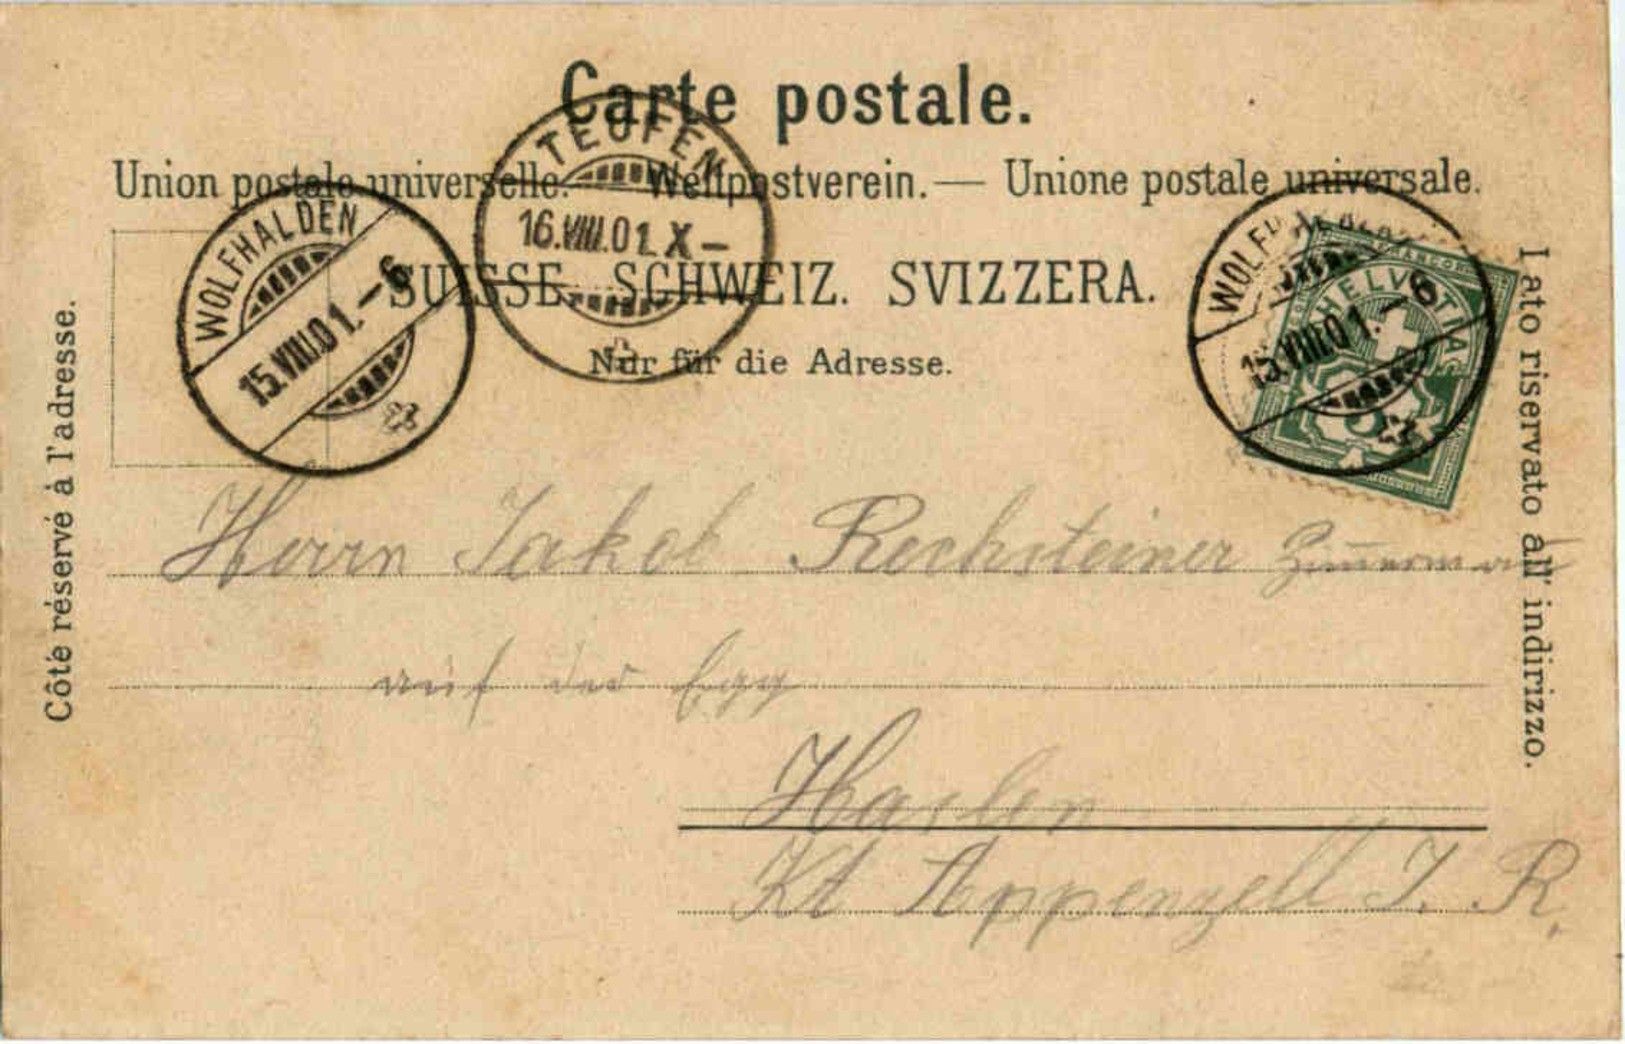 Carte postale.
Union postale universelle. — Weltpostverein. — Unione postale universale.
SUISSE. SCHWEIZ. SVIZZERA.
Nur für die Adresse.
Côté réservé à l'adresse.
Lato riservato all' indirizzo.
WOLFHALDEN
15.VIII.01.–6
TEUFEN
16.VIII.01.X–
WOLFHALDEN
15.VIII.01.–6
HELVETIA
5
Herrn Jakob Rechsteiner
auf der Egg
Haslen
Kt Appenzell I. R.